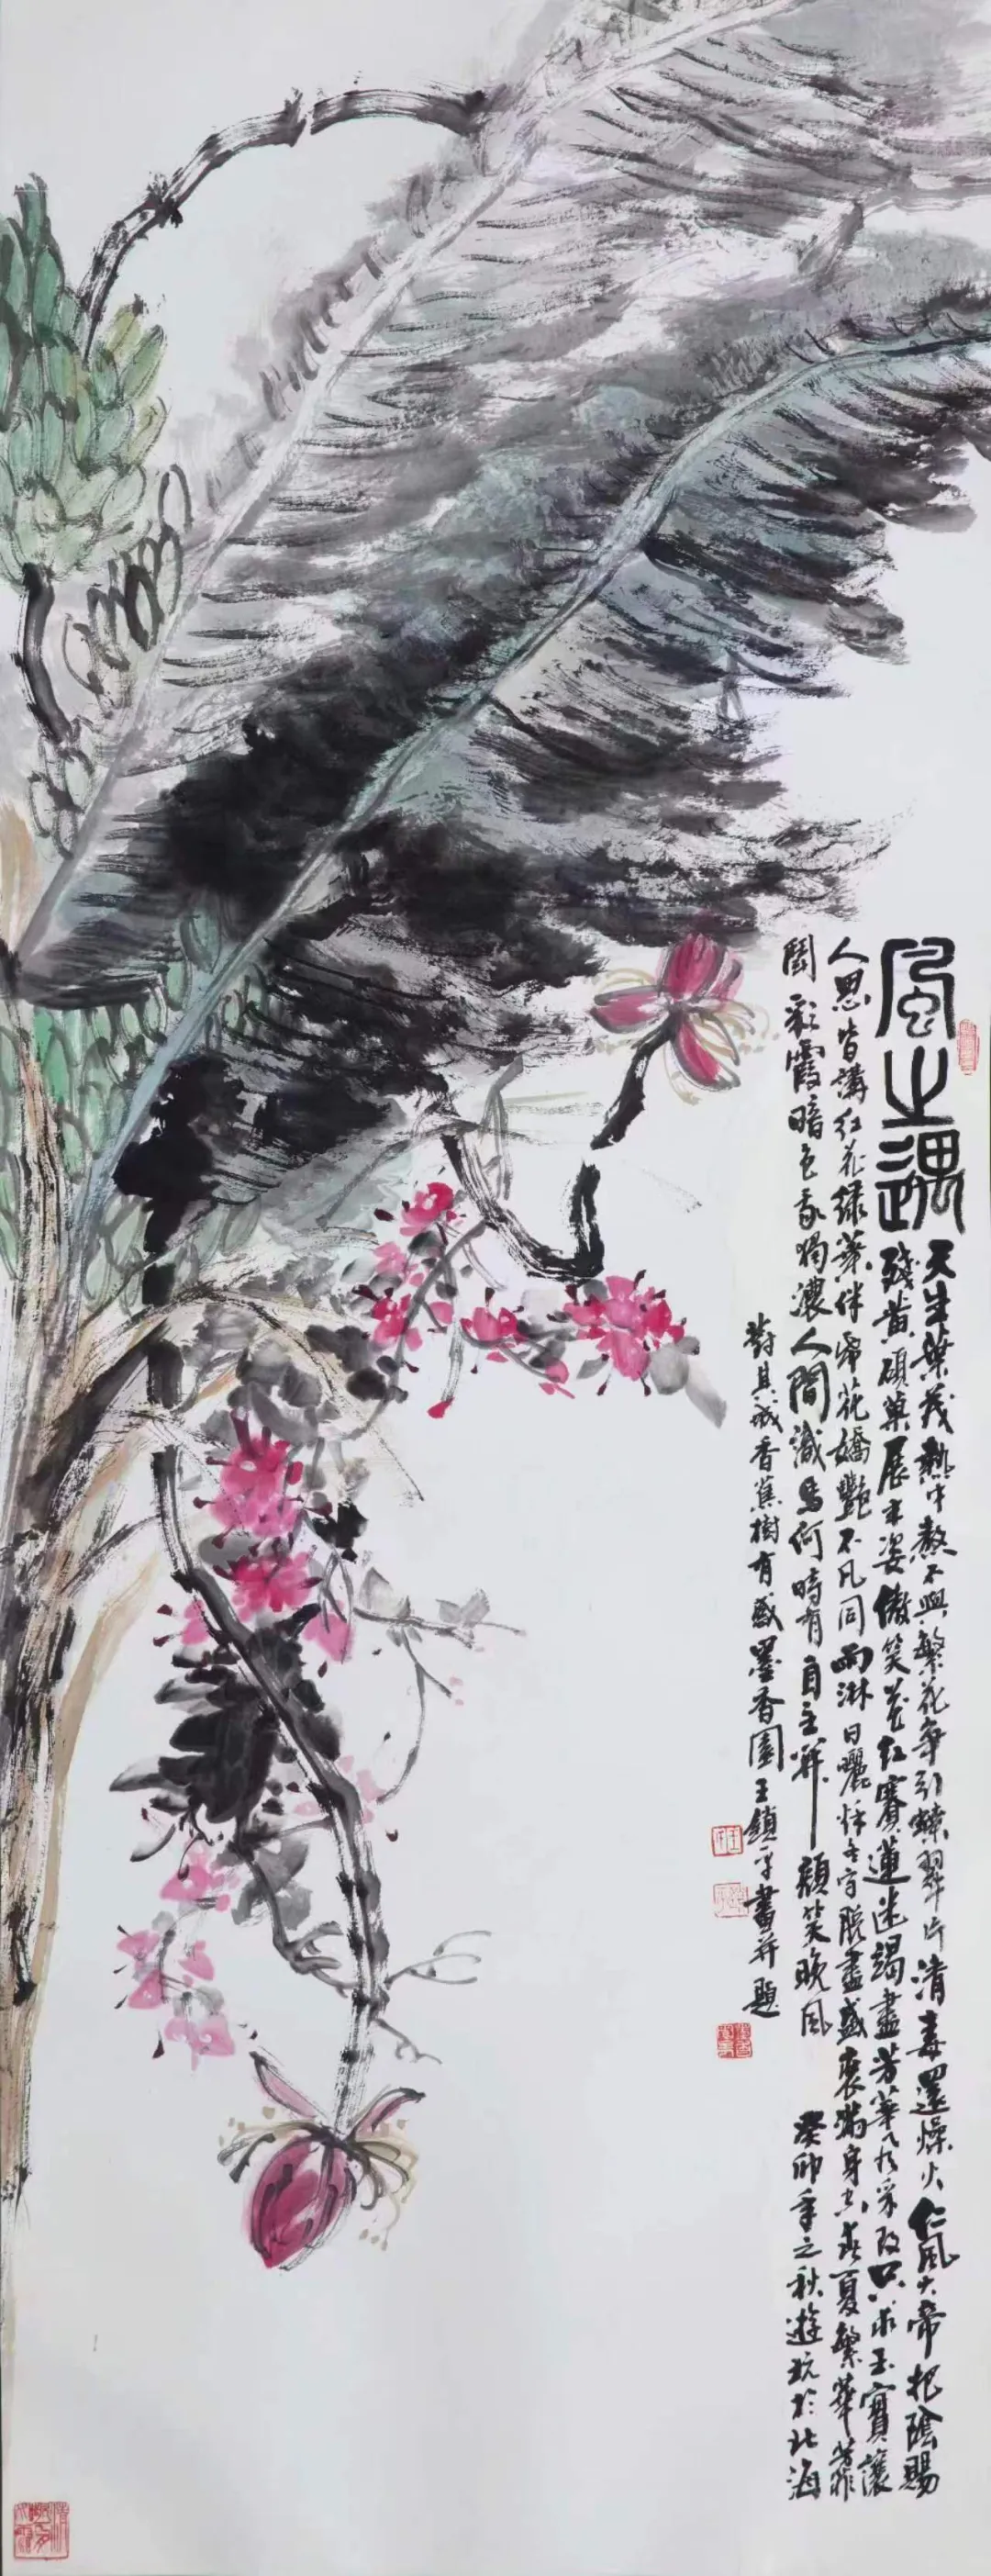 風之遇
天生葉茂熱中熬不與繁花爭引蜂翠片清毒還燥火仁風大帝把陰賜
殘黃碩菓展末姿傲笑花红賽蓮迷竭盡芳華人采改只求玉寶讓
人思皆講红花绿葉伴蕉花嬌艷不凡同雨淋日曬守脱盡盛衰满身春夏繁華
闊彩霞暗色我獨濃人間識馬何時有自主舞一顏笑晚風 癸卯年之秋遊玩於北海
對其成香蕉樹有感墨香園王鎮平畫并題